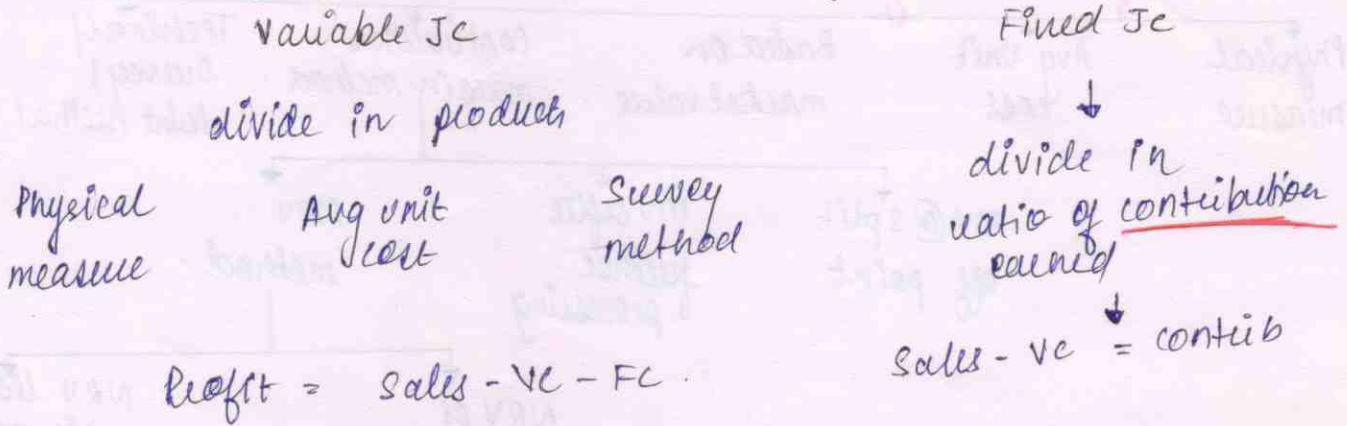 Variable Jc
divide in products
Physical measure
Avg unit cost
Survey method
Profit = Sales - VC - FC.
Fixed Jc
↓
divide in
ratio of contribution
earned
↓
Sales - VC = contrib